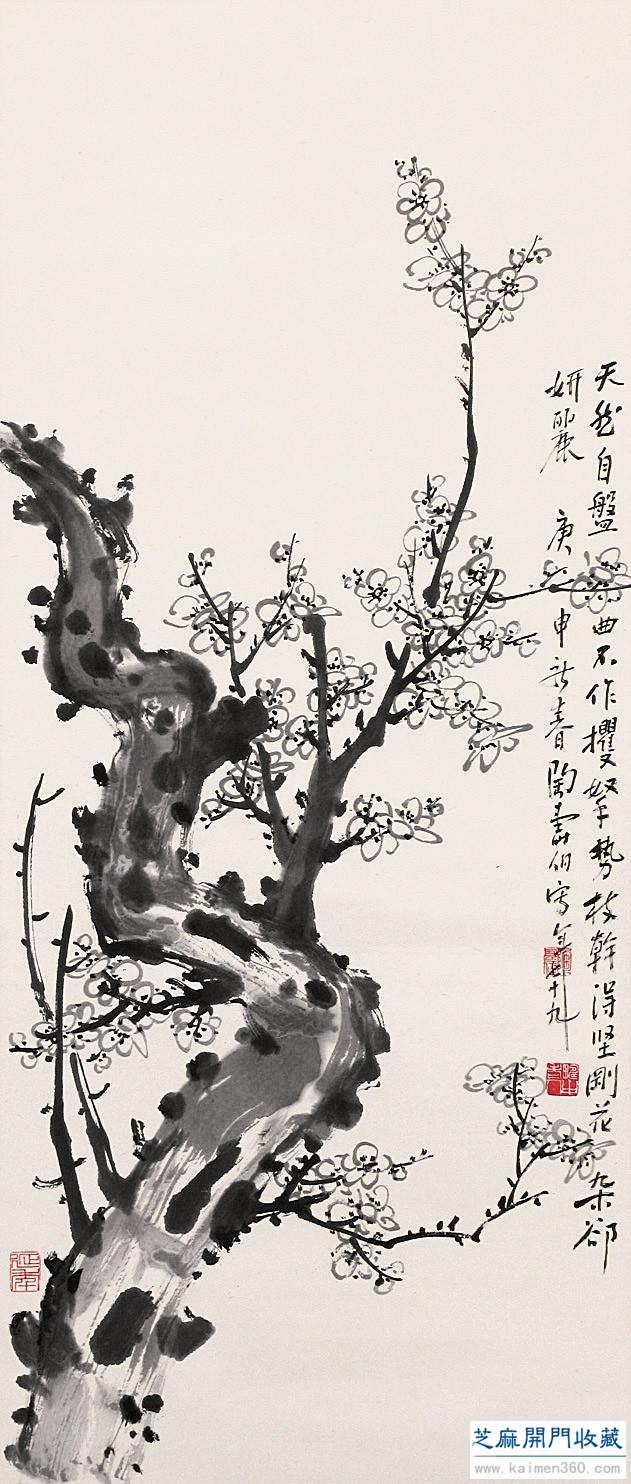 天然自盤曲不作攫拏勢枝幹得坚剛花朵卻
妍麗 庚申新春陶壽伯寫年七十九
延年
芝麻開門收藏
www.kaimen360.com